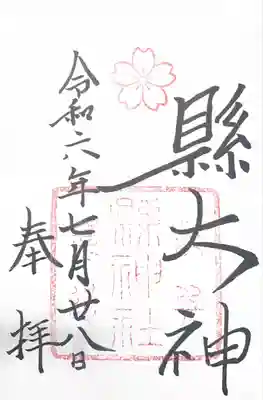 縣大神
奉拝
令和六年七月廿八日
縣神社